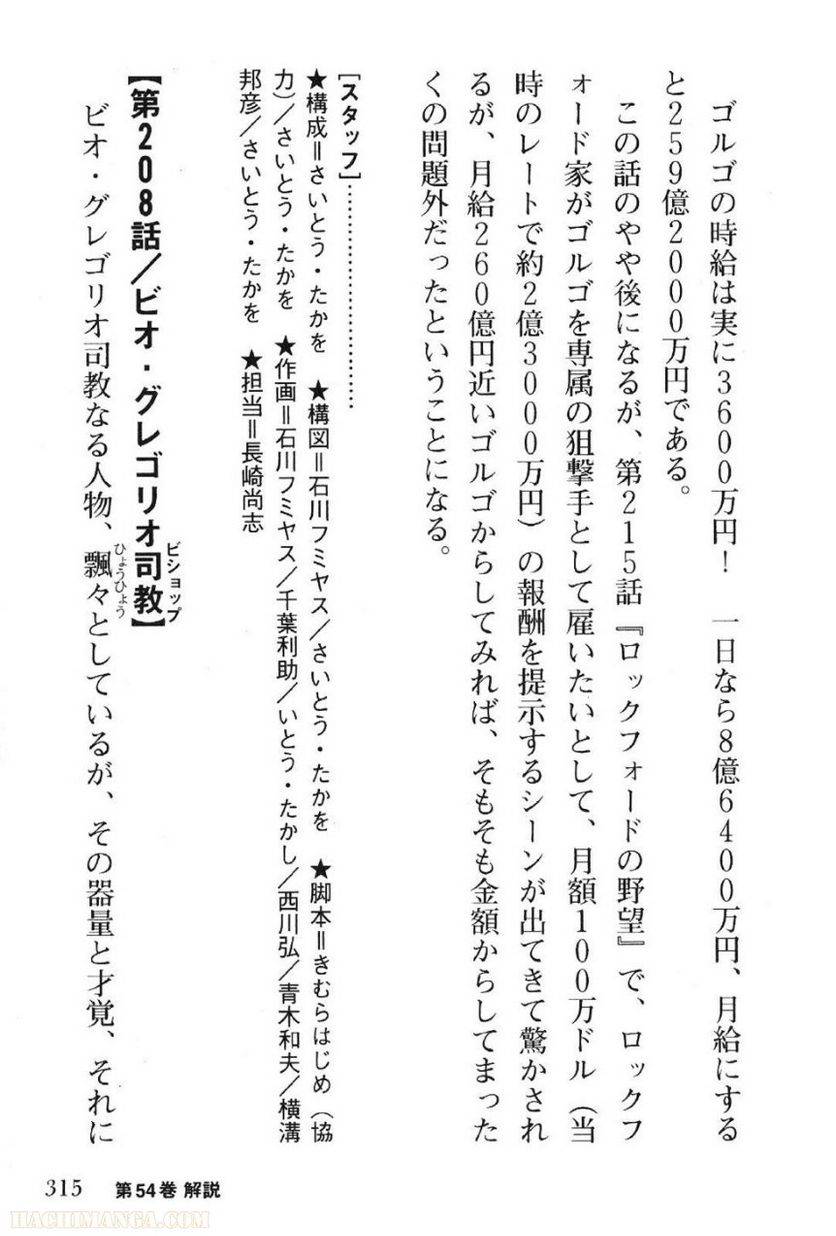 ゴルゴの時給は実に3600万円！　一日なら8億6400万円、月給にする
と259億2000万円である。
この話のやや後になるが、第215話『ロックフォードの野望』で、ロックフ
ォード家がゴルゴを専属の狙撃手として雇いたいとして、月額100万ドル（当
時のレートで約2億3000万円）の報酬を提示するシーンが出てきて驚かされ
るが、月給260億円近いゴルゴからしてみれば、そもそも金額からしてまった
くの問題外だったということになる。
[スタッフ]…………………………
★構成＝さいとう・たかを　★構図＝石川フミヤス／さいとう・たかを　★脚本＝きむらはじめ（協
力）／さいとう・たかを　★作画＝石川フミヤス／千葉利助／いとう・たかし／西川弘／青木和夫／横溝
邦彦／さいとう・たかを　★担当＝長崎尚志
【第208話／ビオ・グレゴリオ司教】
ビショップ
ビオ・グレゴリオ司教なる人物、飄々としているが、その器量と才覚、それに
ひょうひょう
315　第54巻 解説
HACHIMANGA.COM